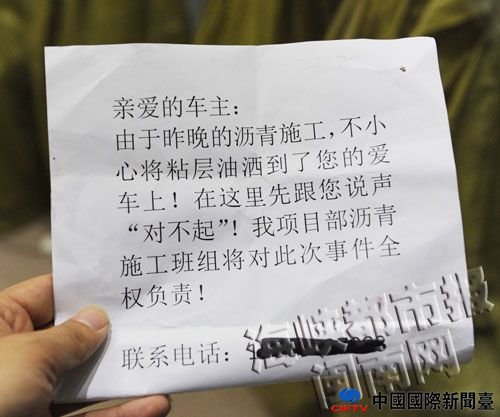 亲爱的车主：
由于昨晚的沥青施工，不小
心将粘层油洒到了您的爱
车上！在这里先跟您说声
“对不起”！我项目部沥青
施工班组将对此次事件全
权负责！
联系电话：
海峡都市报
闽南网
CIFTV 中國國際新聞臺